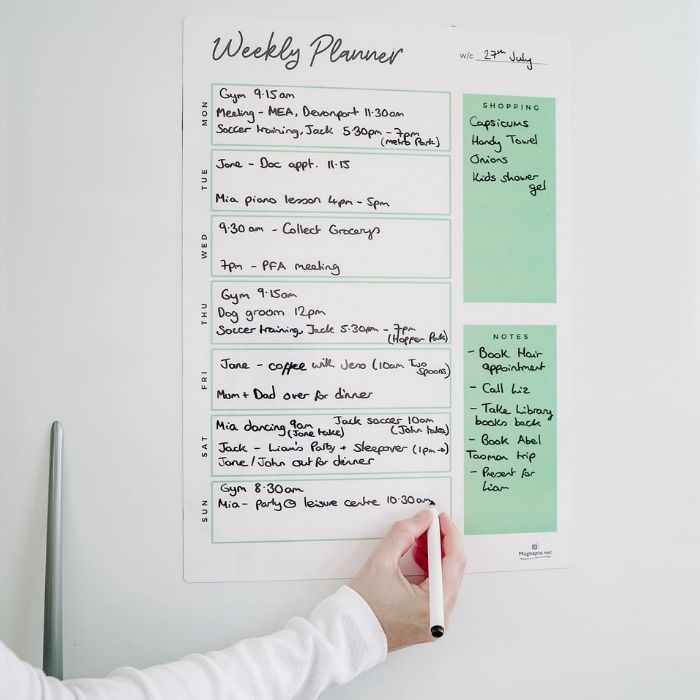 Weekly Planner
w/c 27th July
MON
Gym 9.15am
Meeting - MEA, Devonport 11.30am
Soccer training, Jack 5.30pm - 7pm
(metro Park)
TUE
Jane - Doc appt. 11.15
Mia piano lesson 4pm - 5pm
WED
9.30am - Collect Grocerys
7pm - PFA meeting
THU
Gym 9.15am
Dog groom 12pm
Soccer training, Jack 5.30pm - 7pm
(Hopper Park)
FRI
Jane - coffee with Jeno (10am Two
Spoons)
Mum + Dad over for dinner
SAT
Mia dancing 9am
(Jane take)
Jack soccer 10am
(John take)
Jack - Liam's Party + Sleepover (1pm→)
Jane/John out for dinner
SUN
Gym 8.30am
Mia - party @ leisure centre 10.30am
SHOPPING
Capsicums
Handy Towel
Onions
Kids shower
gel
NOTES
- Book Hair
appointment
- Call Liz
- Take Library
books back
- Book Abel
Tasman trip
- Present for
Liam
Magnapix.net